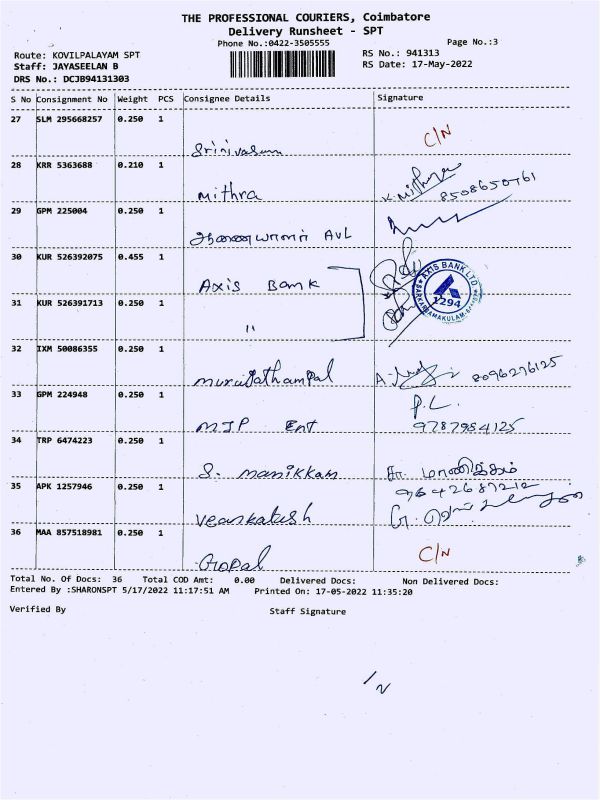 THE PROFESSIONAL COURIERS, Coimbatore
Delivery Runsheet - SPT
Phone No.:0422-3505555
Page No.:3
Route: KOVILPALAYAM SPT
RS No.: 941313
Staff: JAYASEELAN B
RS Date: 17-May-2022
DRS No.: DCJB94131303
S No Consignment No Weight PCS Consignee Details Signature
27 SLM 295668257 0.250 1
Srinivasan C/N
28 KRR 5363688 0.210 1
Mithra K. Mithra 8508650761
29 GPM 225004 0.250 1
AVL
30 KUR 526392075 0.455 1
Axis Bank
AXIS BANK LTD
1294
31 KUR 526391713 0.250 1
"
32 IXM 50086355 0.250 1
8096276125
33 GPM 224948 0.250 1
P.L.
MJP Ent 9787984125
34 TRP 6474223 0.250 1
S. manikkam சு. மாணிக்கம்
35 APK 1257946 0.250 1
9642687212
Venkatesh
36 MAA 857518981 0.250 1
Gopal C/N
Total No. Of Docs: 36 Total COD Amt: 0.00 Delivered Docs: Non Delivered Docs:
Entered By :SHARONSPT 5/17/2022 11:17:51 AM Printed On: 17-05-2022 11:35:20
Verified By Staff Signature